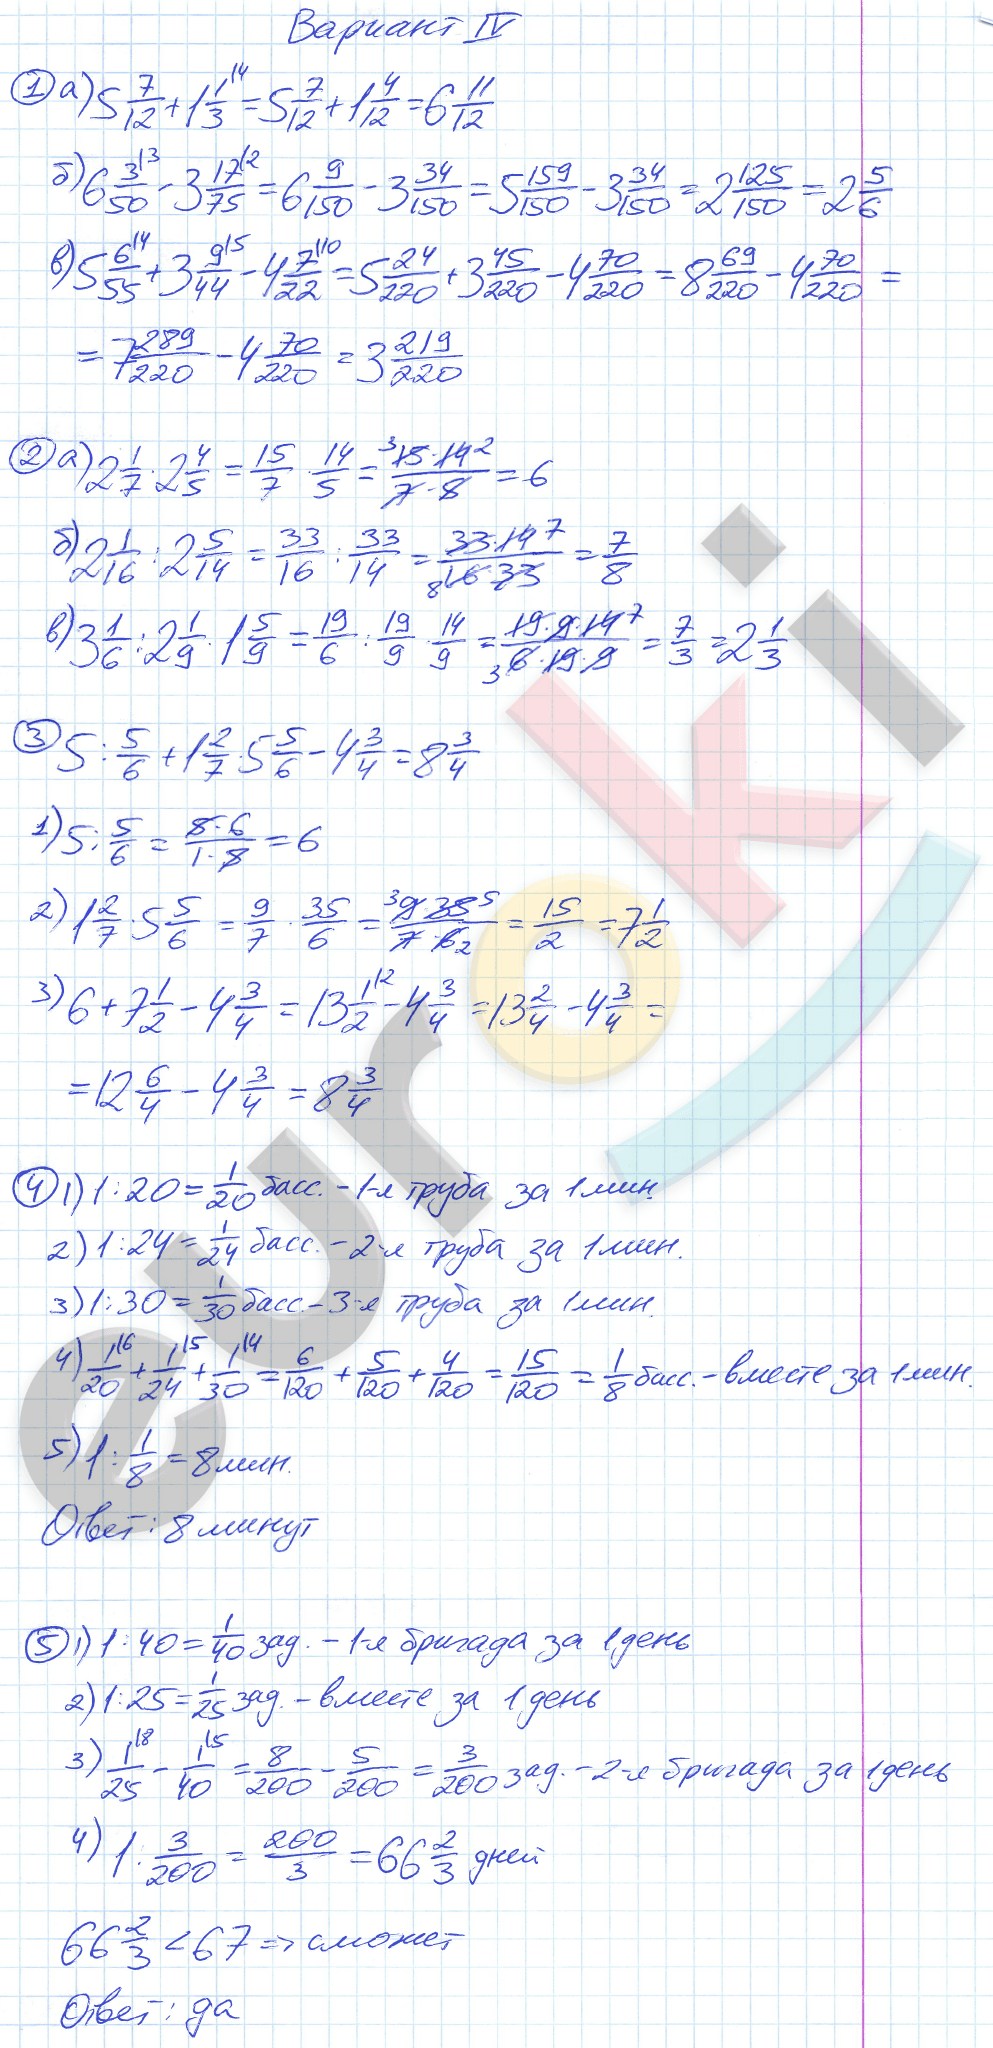 Вариант IV
① а) 5 7/12 + 1 1/3 \4 = 5 7/12 + 1 4/12 = 6 11/12
б) 6 3/50 \3 - 3 17/75 \2 = 6 9/150 - 3 34/150 = 5 159/150 - 3 34/150 = 2 125/150 = 2 5/6
в) 5 6/55 \4 + 3 9/44 \5 - 4 7/22 \10 = 5 24/220 + 3 45/220 - 4 70/220 = 8 69/220 - 4 70/220 =
= 7 289/220 - 4 70/220 = 3 219/220
② а) 2 1/7 · 2 4/5 = 15/7 · 14/5 = 3 15·14 2 / 7·5 = 6
б) 2 1/16 : 2 5/14 = 33/16 : 33/14 = 33·14 7 / 8 16·33 = 7/8
в) 3 1/6 : 2 1/9 · 1 5/9 = 19/6 : 19/9 · 14/9 = 19·9·14 7 / 3 6·19·9 = 7/3 = 2 1/3
③ 5 : 5/6 + 1 2/7 · 5 5/6 - 4 3/4 = 8 3/4
1) 5 : 5/6 = 5·6 / 1·5 = 6
2) 1 2/7 · 5 5/6 = 9/7 · 35/6 = 3 9·35 5 / 7·6 2 = 15/2 = 7 1/2
3) 6 + 7 1/2 - 4 3/4 = 13 1/2 \2 - 4 3/4 = 13 2/4 - 4 3/4 =
= 12 6/4 - 4 3/4 = 8 3/4
④ 1) 1 : 20 = 1/20 басс. - 1-я труба за 1 мин.
2) 1 : 24 = 1/24 басс. - 2-я труба за 1 мин.
3) 1 : 30 = 1/30 басс. - 3-я труба за 1 мин.
4) 1/20 \6 + 1/24 \5 + 1/30 \4 = 6/120 + 5/120 + 4/120 = 15/120 = 1/8 басс. - вместе за 1 мин.
5) 1 : 1/8 = 8 мин.
Ответ: 8 минут
⑤ 1) 1 : 40 = 1/40 зад. - 1-я бригада за 1 день
2) 1 : 25 = 1/25 зад. - вместе за 1 день
3) 1/25 \8 - 1/40 \5 = 8/200 - 5/200 = 3/200 зад. - 2-я бригада за 1 день
4) 1 : 3/200 = 200/3 = 66 2/3 дней
66 2/3 < 67 => сможет
Ответ: да
euroki